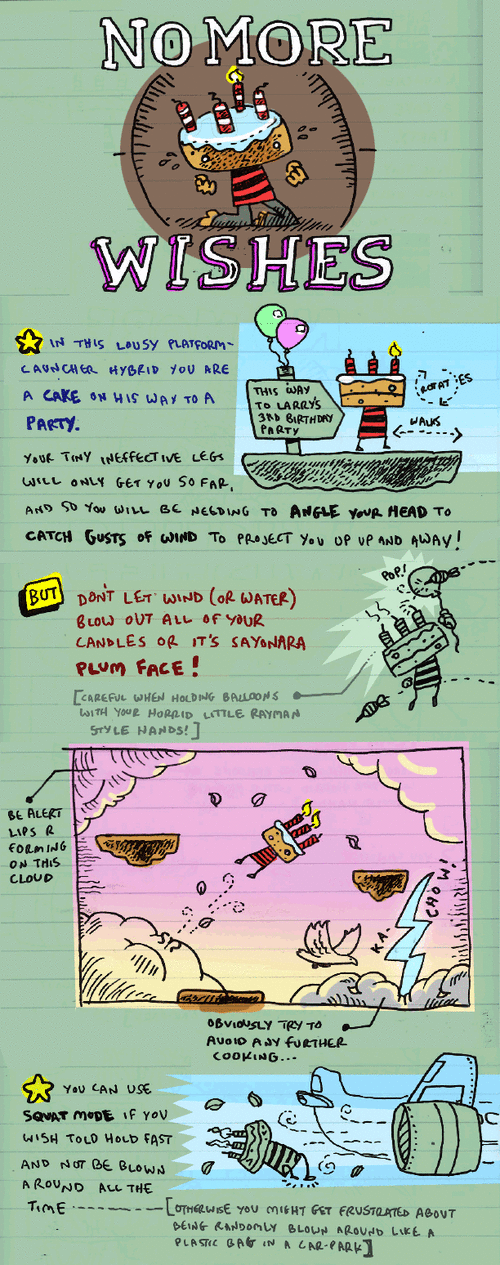 NO MORE
WISHES
IN THIS LOUSY PLATFORM-
LAUNCHER HYBRID YOU ARE
A CAKE ON HIS WAY TO A
PARTY.
THIS WAY
TO LARRY'S
3RD BIRTHDAY
PARTY
ROTATES
WALKS
YOUR TINY INEFFECTIVE LEGS
WILL ONLY GET YOU SO FAR,
AND SO YOU WILL BE NEEDING TO ANGLE YOUR HEAD TO
CATCH GUSTS OF WIND TO PROJECT YOU UP UP AND AWAY!
BUT
DON'T LET WIND (OR WATER)
BLOW OUT ALL OF YOUR
CANDLES OR IT'S SAYONARA
PLUM FACE!
POP!
[CAREFUL WHEN HOLDING BALLOONS
WITH YOUR HORRID LITTLE RAYMAN
STYLE HANDS!]
BE ALERT
LIPS R
FORMING
ON THIS
CLOUD
KA-CHOW!
OBVIOUSLY TRY TO
AVOID ANY FURTHER
COOKING...
YOU CAN USE
SQUAT MODE IF YOU
WISH TOLD HOLD FAST
AND NOT BE BLOWN
AROUND ALL THE
TIME
[OTHERWISE YOU MIGHT GET FRUSTRATED ABOUT
BEING RANDOMLY BLOWN AROUND LIKE A
PLASTIC BAG IN A CAR-PARK]